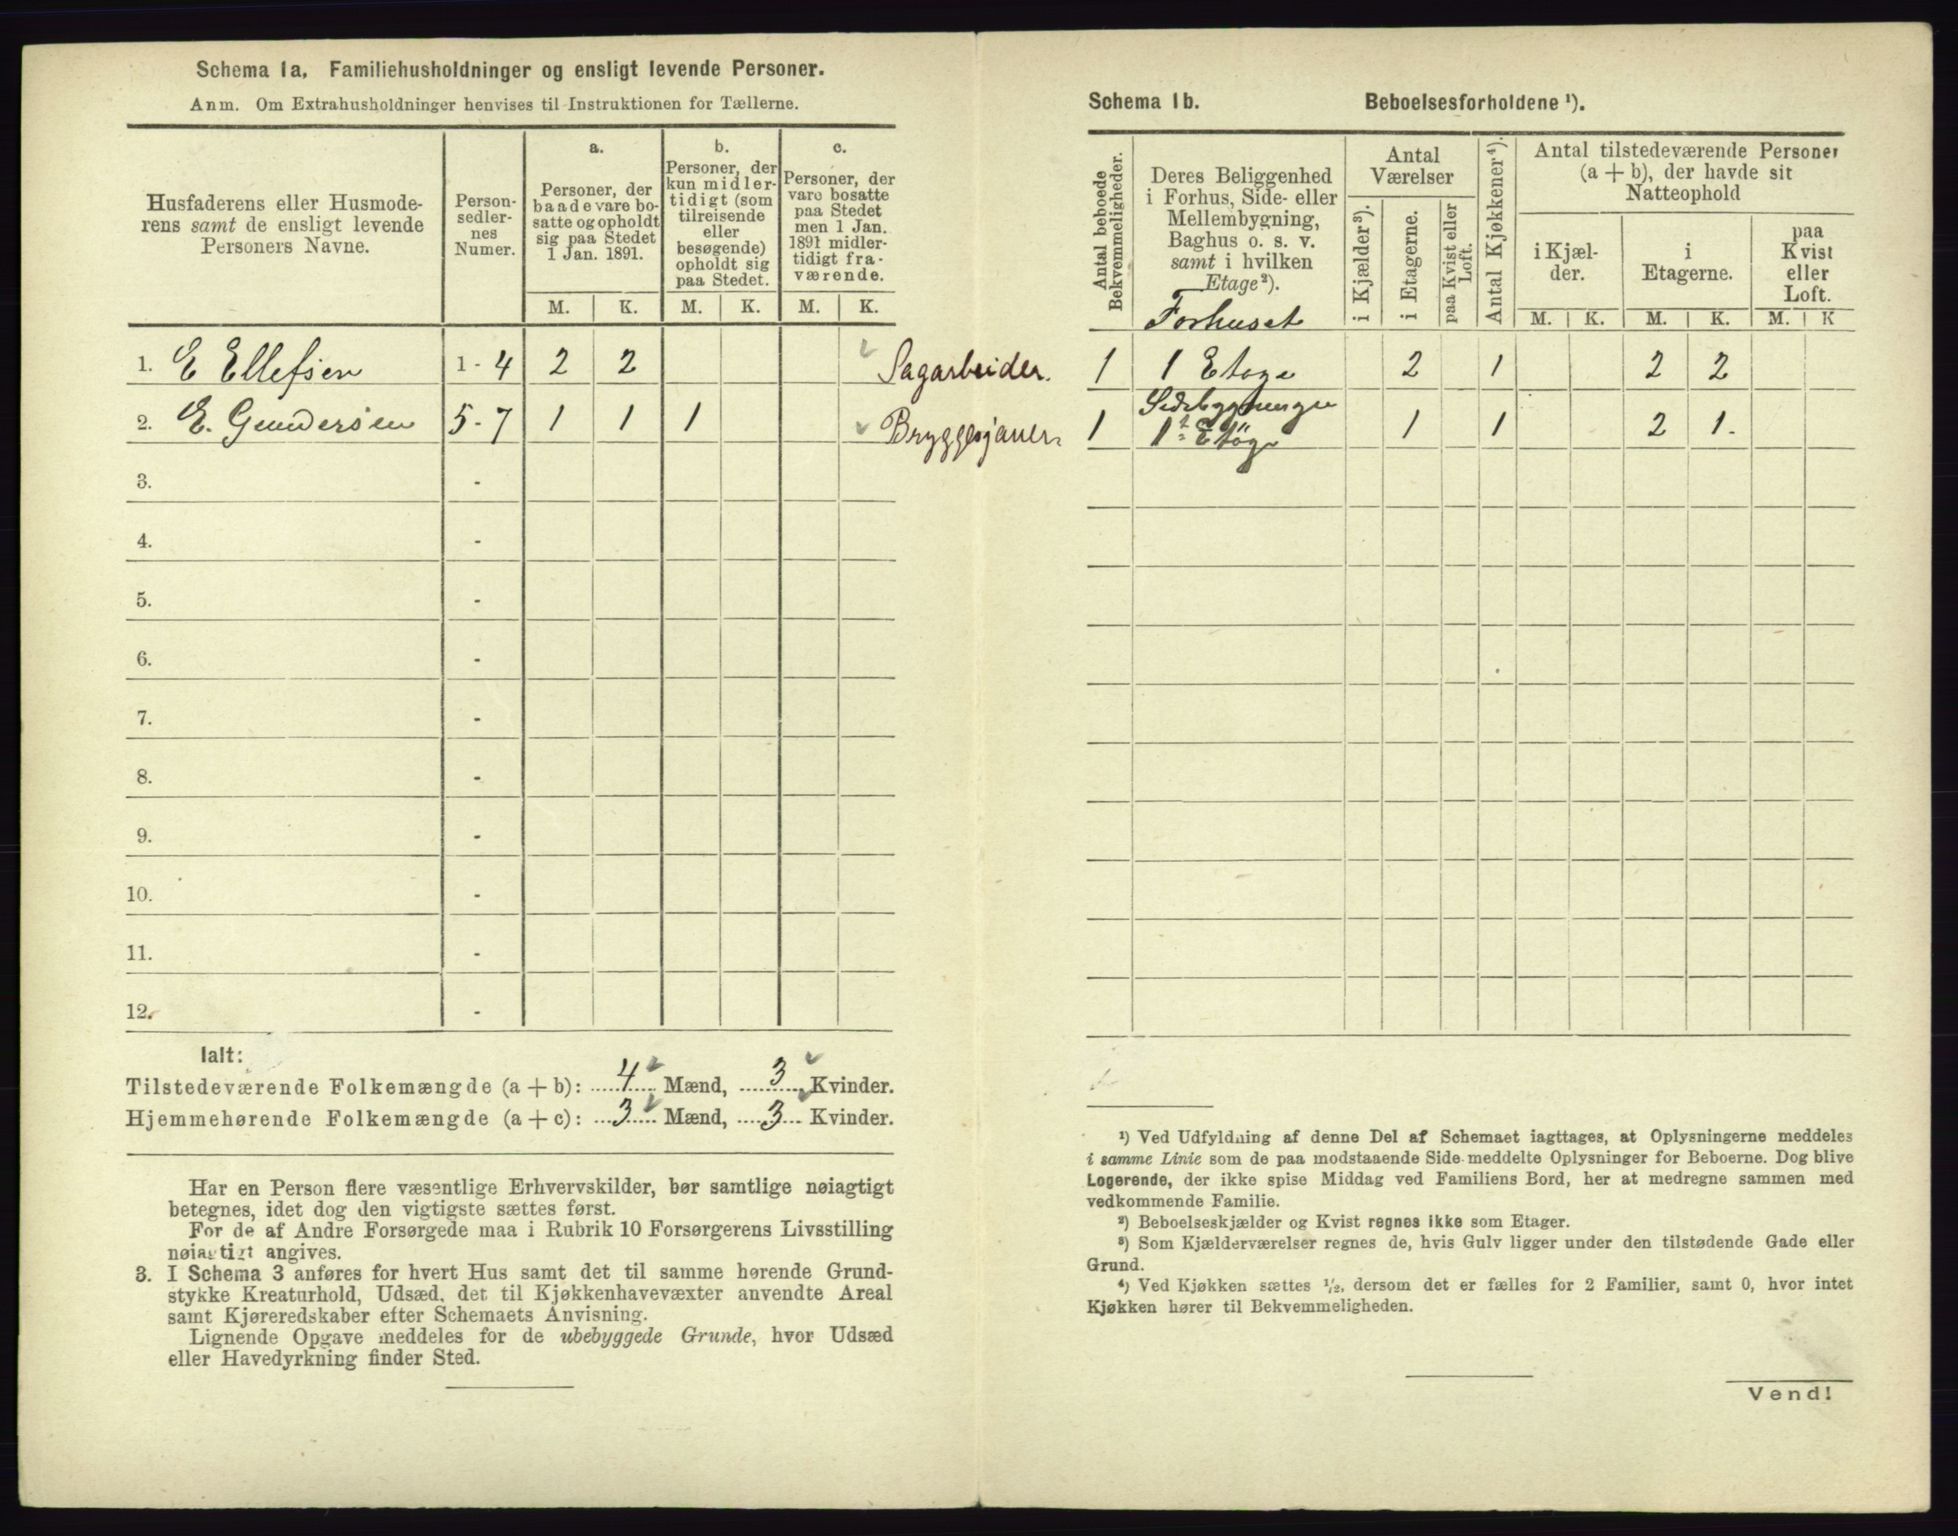 Schema 1a. Familiehusholdninger og ensligt levende Personer.
Anm. Om Extrahusholdninger henvises til Instruktionen for Tællerne.
Husfaderens eller Husmoderens samt de ensligt levende Personers Navne.
Person-sedlernes Numer.
a. Personer, der baade vare bosatte og opholdt sig paa Stedet 1 Jan. 1891.
b. Personer, der kun midlertidigt (som tilreisende eller besøgende) opholdt sig paa Stedet.
c. Personer, der vare bosatte paa Stedet men 1 Jan. 1891 midlertidigt fraværende.
M. K. M. K. M. K.
1. E Ellefsen 1-4 2 2 Sagarbeider.
2. E. Gundersen 5-7 1 1 1 Bryggesjauer
3. -
4. -
5. -
6. -
7. -
8. -
9. -
10. -
11. -
12. -
Ialt:
Tilstedeværende Folkemængde (a + b): 4 Mænd, 3 Kvinder.
Hjemmehørende Folkemængde (a + c): 3 Mænd, 3 Kvinder.
Har en Person flere væsentlige Erhvervskilder, bør samtlige nøiagtigt
betegnes, idet dog den vigtigste sættes først.
For de af Andre Forsørgede maa i Rubrik 10 Forsørgerens Livsstilling
nøiagtigt angives.
3. I Schema 3 anføres for hvert Hus samt det til samme hørende Grund-
stykke Kreaturhold, Udsæd, det til Kjøkkenhavevæxter anvendte Areal
samt Kjøreredskaber efter Schemaets Anvisning.
Lignende Opgave meddeles for de ubebyggede Grunde, hvor Udsæd
eller Havedyrkning finder Sted.
Schema 1b. Beboelsesforholdene ¹).
Antal beboede Bekvemmeligheder.
Deres Beliggenhed i Forhus, Side- eller Mellembygning, Baghus o. s. v. samt i hvilken Etage²).
Antal Værelser
i Kjælder³).
i Etagerne.
paa Kvist eller Loft.
Antal Kjøkkener⁴).
Antal tilstedeværende Personer (a + b), der havde sit Natteophold
i Kjælder.
i Etagerne.
paa Kvist eller Loft.
M. K. M. K. M. K
Forhuset
1 1 Etage 2 1 2 2
Sidebygningen
1 1te Etage 1 1 2 1.
¹) Ved Udfyldning af denne Del af Schemaet iagttages, at Oplysningerne meddeles
i samme Linie som de paa modstaaende Side meddelte Oplysninger for Beboerne. Dog blive
Logerende, der ikke spise Middag ved Familiens Bord, her at medregne sammen med
vedkommende Familie.
²) Beboelseskjælder og Kvist regnes ikke som Etager.
³) Som Kjælderværelser regnes de, hvis Gulv ligger under den tilstødende Gade eller
Grund.
⁴) Ved Kjøkken sættes ½, dersom det er fælles for 2 Familier, samt 0, hvor intet
Kjøkken hører til Bekvemmeligheden.
Vend!